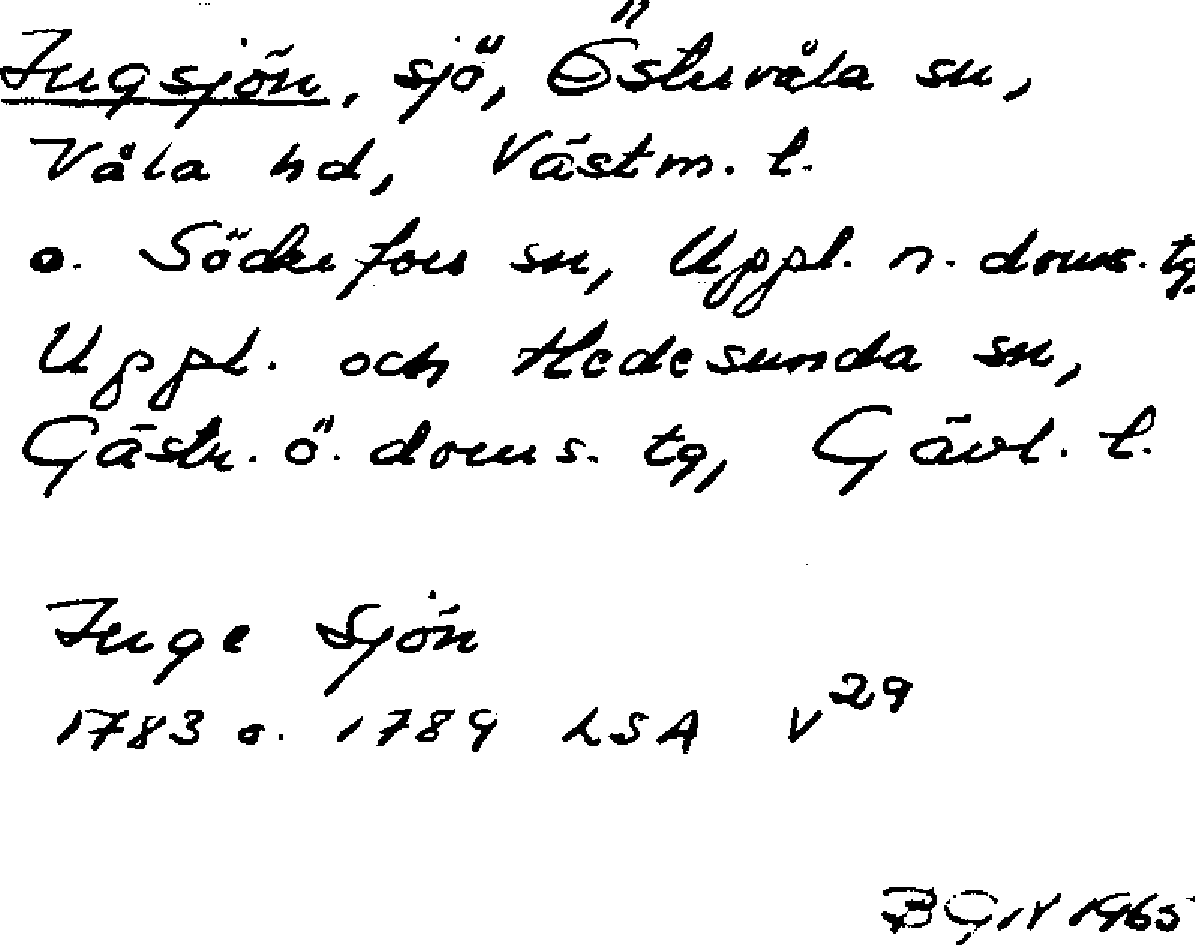 Ingsjön, sjö, Östervåla sn,
Våla hd, Västm. l.
o. Söderfors sn, Uppl. n. doms. tg,
Uppl. och Hedesunda sn,
Gästr. ö. doms. tg, Gävl. l.
Inge Sjön
1783 o. 1789 LSA V29
BG IV 1965